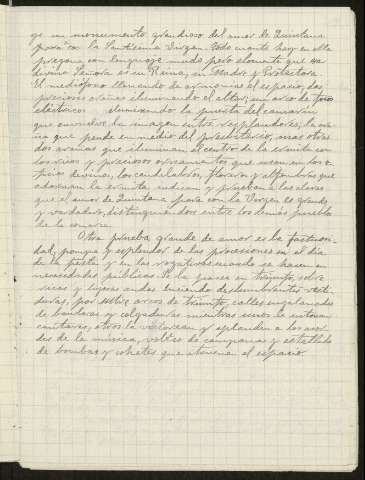 ge un monumento grandioso del amor de Quintana
para con la Santísima Virgen. Todo cuanto hay en ella
pregona con lenguage mudo pero elocuente que esa
divina Señora es su Reina, su Madre y Protectora.
El mediófono llenando de armonías el espacio, dos
preciosas arañas iluminando el altar; un arco de focos
eléctricos iluminando la puerta del camarín
que envuelve la imagen entre resplandores; la ara
ña que pende en medio del presbiterio, mas otras
dos arañas que iluminan el centro de la ermita con
los ricos y preciosos ornamentos que usan en los o-
ficios divinos, los candelabros, floreros y alfombras que
adornan la ermita indican y prueban a las claras
que el amor de Quintana para con la Virgen es grande
y verdadero, distinguiendose entre los demás pueblos
de la comarca.
Otra prueba grande de amor es la fastuosi-
dad, pompa y esplendor de las procesiones en el día
de la fiesta y en las rogativas cuando se hacen en
necesidades públicas. Se la pasea en triunfo, sobre
ricas y lujosas andas luciendo deslumbrantes vesti-
duras, por sobre arcos de triunfo, calles engalanadas
de banderas y colgaduras mientras unos le entonan
cantares, otros la vitorean y aplauden a los acor-
des de la música, volteo de campanas y estallido
de bombas y cohetes que atruena el espacio.